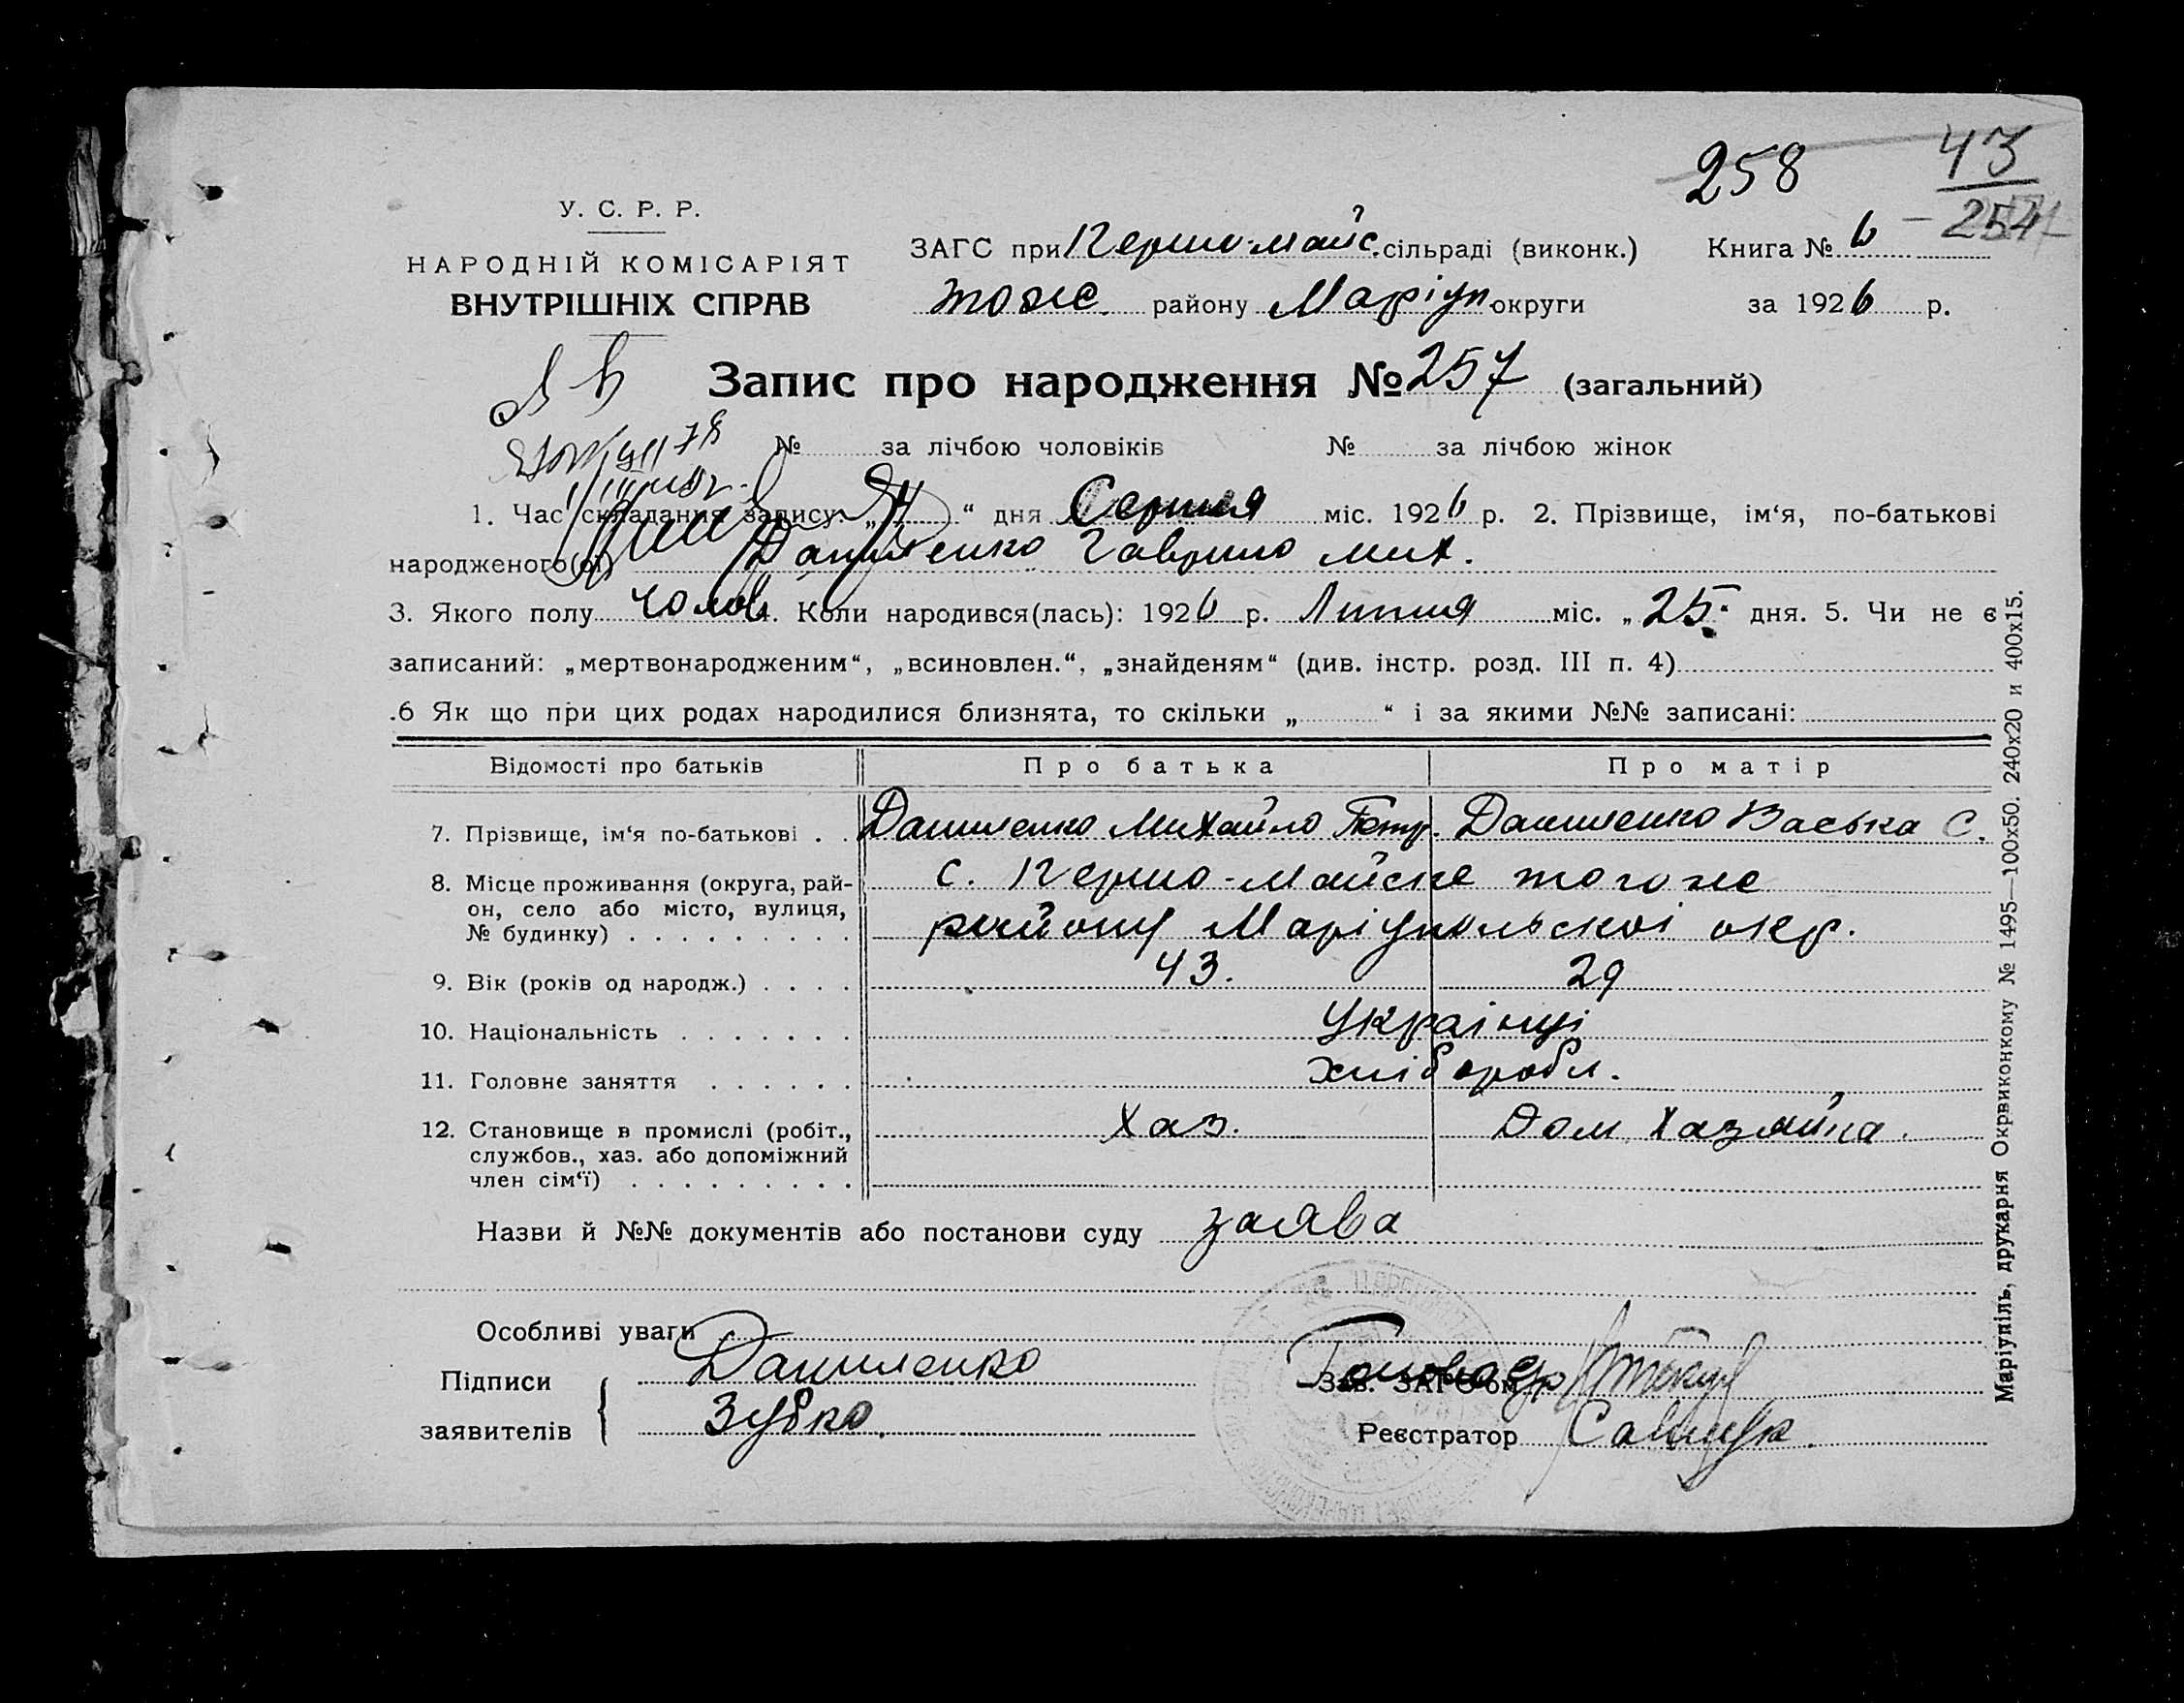 258
43
254
У. С. Р. Р.
НАРОДНІЙ КОМІСАРІЯТ
ВНУТРІШНІХ СПРАВ
ЗАГС при Першо-майс. сільраді (виконк.) Книга № 6
тоже. району Маріуп. округи за 1926 р.
Запис про народження № 257 (загальний)
№ за лічбою чоловіків № за лічбою жінок
1. Час складання запису: „ “ дня Серпня міс. 1926 р. 2. Прізвище, ім‘я, по-батькові
народженого(ої) Даниленко Гаврило мих.
3. Якого полу чолов. 4. Коли народився(лась): 1926 р. Липня міс. „25“ дня. 5. Чи не є
записаний: „мертвонародженим“, „всиновлен.“, „знайденям“ (див. інстр. розд. III п. 4)
.6 Як що при цих родах народилися близнята, то скільки „ “ і за якими №№ записані:
Відомості про батьків Про батька Про матір
7. Прізвище, ім‘я по-батькові . . Даниленко Михайло Петр. Даниленко Васька С.
8. Місце проживання (округа, рай-
он, село або місто, вулиця,
№ будинку) . . . . . . . . .
с. Першо-майске тогоже
району Маріупольскоі окр.
9. Вік (років од народж.) . . . . 43. 29
10. Національність . . . . . . . Українці
11. Головне заняття . . . . . . хлібороби.
12. Становище в промислі (робіт.,
службов., хаз. або допоміжний
член сім‘ї) . . . . . . . . .
Хаз. Дом. Хазяйка.
Назви й №№ документів або постанови суду заява
Особливі уваги
Підписи
заявителів
Даниленко
Зубко.
Голова с/р
Зав. ЗАГС‘ом
Реєстратор Савчук.
Маріупіль, друкарня Окрвиконкому № 1495—100x50. 240x20 и 400x15.